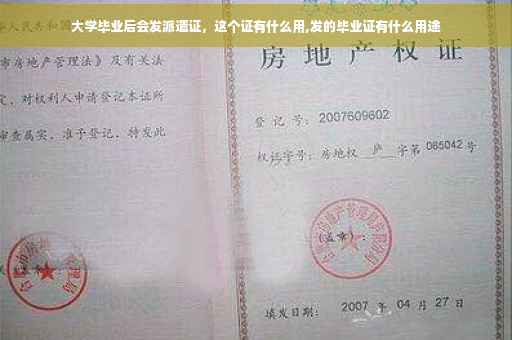 大学毕业后会发派遣证，这个证有什么用,发的毕业证有什么用途
人民共和国
市房地产管理法》及有关法
定，对权利人申请登记本证所
审查属实，准予登记，特发此
房地产权证
登记号：2007609602
权证字号：房地权 庐 字第 065042 号
房地产管理局
（盖章）：
填发日期：2007 年 04 月 27 日